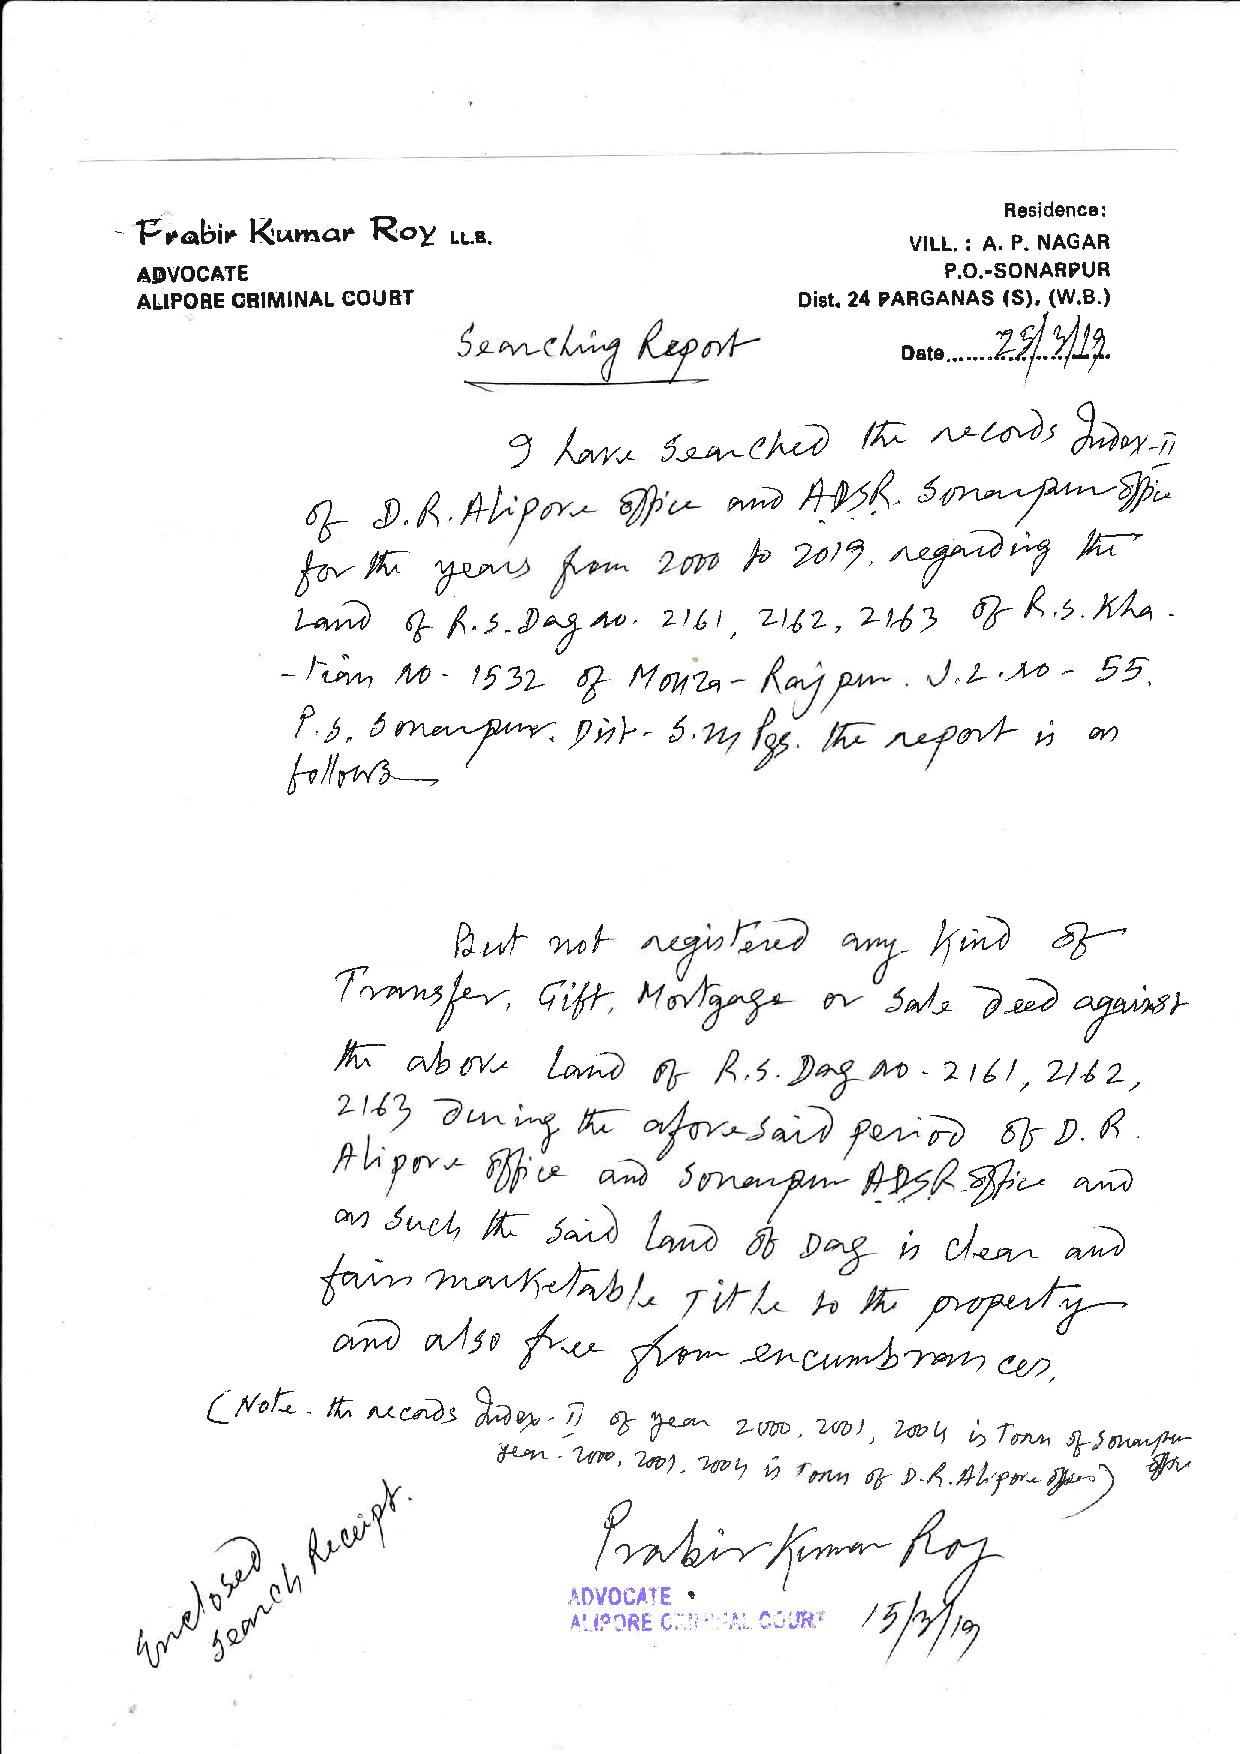 Prabir Kumar Roy LL.B.
ADVOCATE
ALIPORE CRIMINAL COURT
Residence:
VILL. : A. P. NAGAR
P.O.-SONARPUR
Dist. 24 PARGANAS (S), (W.B.)
Date....... 25/3/19
Searching Report
I have searched the records Index-II
of D.R. Alipore office and A.D.S.R. Sonarpur office
for the years from 2000 to 2019, regarding the
Land of R.S. Dag no. 2161, 2162, 2163 of R.S. Kha-
-tian no - 1532 of Mouza - Rajpur. J.L. no - 55.
P.S. Sonarpur. Dist - S. Pgs. the report is as
follows
But not registered any kind of
Transfer, Gift, Mortgage or Sale deed against
the above Land of R.S. Dag no - 2161, 2162,
2163 during the aforesaid period of D.R.
Alipore office and Sonarpur A.D.S.R. office and
as such the said land of Dag is clear and
fair marketable Title to the property
and also free from encumbrances.
(Note - the records Index-II of year 2000, 2001, 2004 is Torn of Sonarpur office
year - 2000, 2001, 2004 is Torn of D.R. Alipore office)
Enclosed
Search Receipt.
Prabir Kumar Roy
ADVOCATE
ALIPORE CRIMINAL COURT
15/3/19